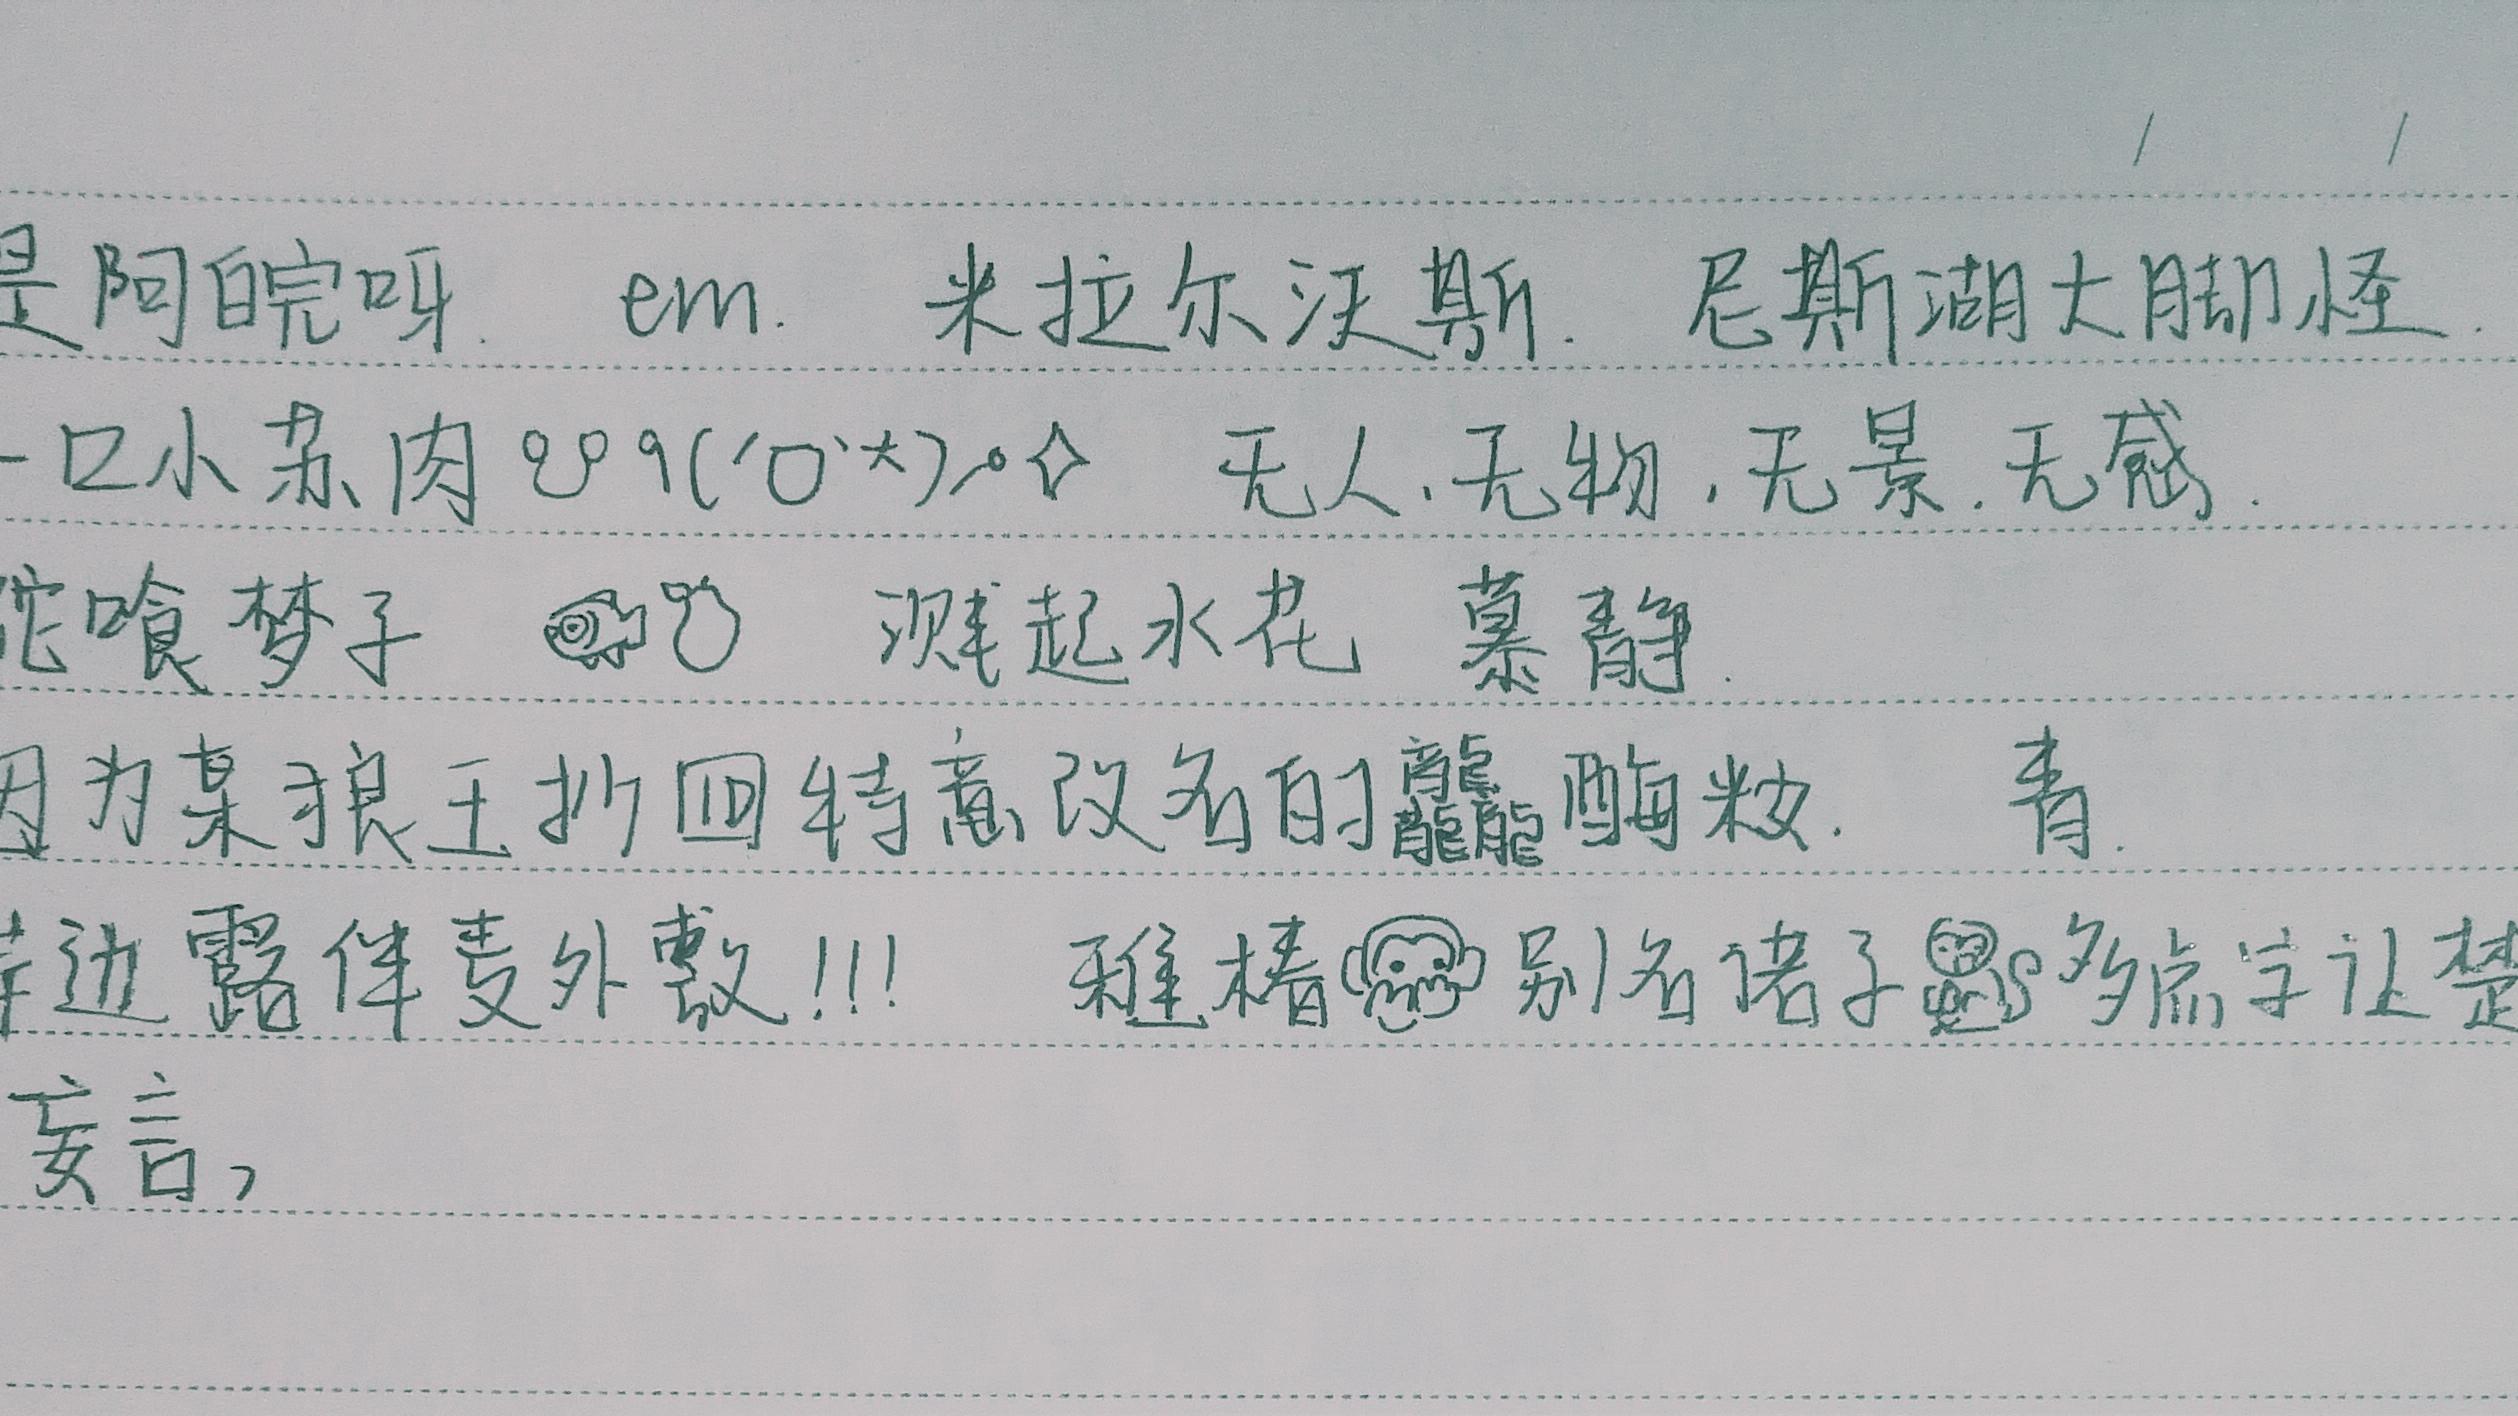 是阿皖呀. em. 米拉尔沃斯. 尼斯湖大脚怪.
一口小苏肉 ٩('ㅁ`*)و✧ 无人.无物.无景.无感.
佗喰梦子 溅起水花 慕静.
因为某狼王折回特意改名的龘酶籹. 青.
岸边露伴麦外敷!!! 雅椿别名偖子多点字让楚
妄言,